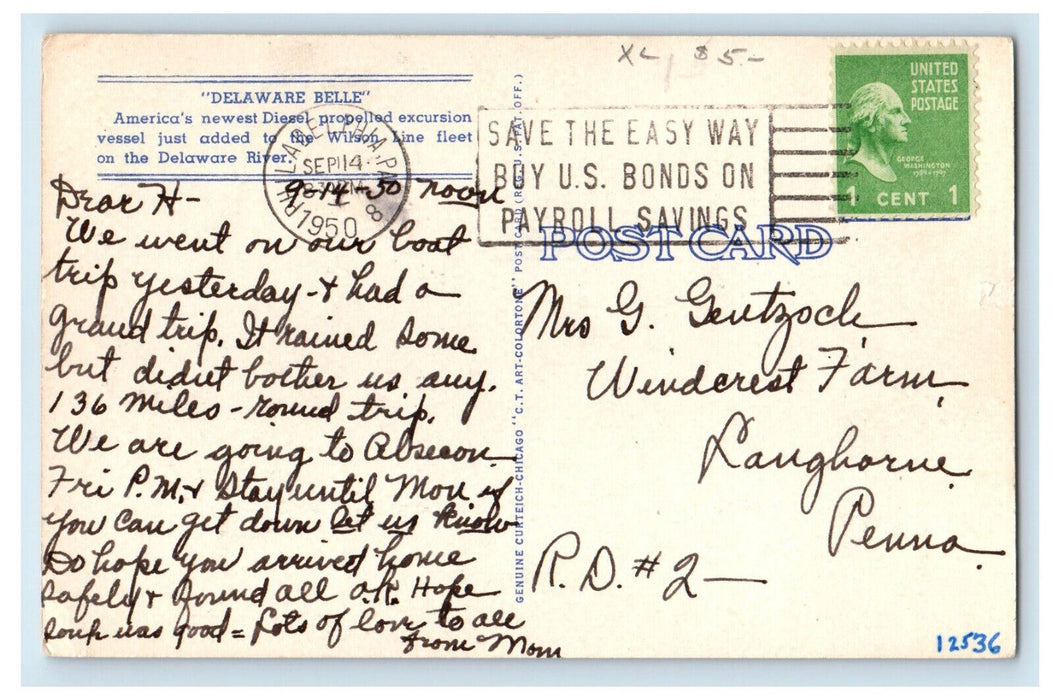 XL, $5.-
"DELAWARE BELLE"
America's newest Diesel propelled excursion
vessel just added to the Wilson Line fleet
on the Delaware River.
PHILADELPHIA, PA. 8
SEP 14
1950
SAVE THE EASY WAY
BUY U.S. BONDS ON
PAYROLL SAVINGS
UNITED
STATES
POSTAGE
GEORGE
WASHINGTON
1789-1797
1 CENT 1
POST CARD
GENUINE CURTEICH-CHICAGO "C.T. ART-COLORTONE" POST CARD (REG. U.S. PAT. OFF.)
9-14-50 Noon
Dear H-
We went on our boat
trip yesterday - & had a
grand trip. It rained some
but didn't bother us any.
136 miles - round trip.
We are going to Absecon
Fri P.M. & stay until Mon if
you can get down let us know
Do hope you arrived home
safely & found all O.K. Hope
soup was good = Lots of love to all
from Mom
Mrs G. Gentzoch
Windcrest Farm,
Langhorne
Penna.
R.D. #2 -
12536